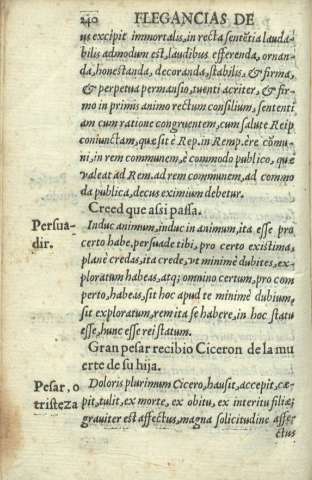 240 ELEGANCIAS DE
us excipit immortalis, in recta sentẽtia lauda-
bilis admodum est, laudibus efferenda, ornan
da, honestanda, decoranda, stabilis, & firma,
& perpetua permansio, tuenti acriter, & fir-
mo in primis animo rectum consilium, sententi
am cum ratione congruentem, cum salute Reip
coniunctam, quæ sit è Rep. in Remp. ère cõmu-
ni, in rem communem, è commodo publico, quæ
valeat ad Rem. ad rem communem, ad commo
da publica, decus eximium debetur.
Creed que assi passa.
Persua-
dir.
Induc animum, induc in animum, ita esse pro
certo habe, persuade tibi, pro certo existima,
planè credas, ita crede, vt minimè dubites, ex-
ploratum habeas, atq; omnino certum, pro com
perto, habeas, sit hoc apud te minimè dubium,
sit exploratum, rem ita se habere, in hoc statu
esse, hunc esse rei statum.
Gran pesar recibio Ciceron de la mu
erte de su hija.
Pesar, o
tristeza
Doloris plurimum Cicero, hausit, accepit, cæ-
pit, tulit, ex morte, ex obitu, ex interitu filiæ;
grauiter est affectus, magna solicitudine affe-
ctus